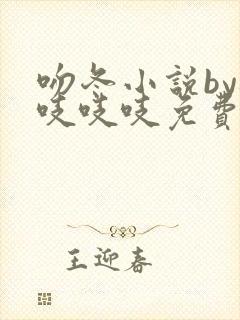 吻冬小说by
吱吱吱免费
王迎春